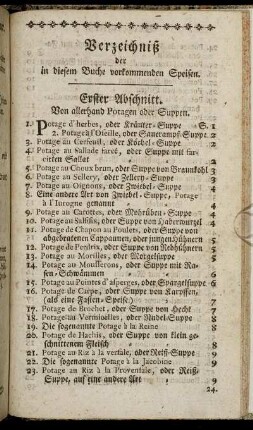 Verzeichniß
der
in diesem Buche vorkommenden Speisen.
Erster Abschnitt.
Von allerhand Potagen oder Suppen.
1. Potage d'herbes, oder Kräuter-Suppe S. 1
2. Potage à l'Oseille, oder Saueramps-Suppe 2
3. Potage au Cerfeuil, oder Köchel-Suppe 2
4. Potage au Sallade farcé, oder Suppe mit far-
cirten Sallat 2
5. Potage au Choux brun, oder Suppe von Braunkohl 3
6. Potage au Sellery, oder Zellern-Suppe 3
7. Potage au Oignons, oder Zwiebel-Suppe 4
8. Eine andere Art von Zwiebel-Suppe, Potage
à l'Ivrogne genannt 4
9. Potage au Carottes, oder Mohrrüben-Suppe 4
10. Potage au Salsifis, oder Suppe von Haberwurzel 4
11. Potage de Chapon au Poulets, oder Suppe von
abgebratenen Cappaunen, oder jungen Hühnern 5
12. Potage de Perdrix, oder Suppe von Rebhühnern 5
13. Potage au Morilles, oder Morgelsuppe 5
14. Potage au Mousserons, oder Suppe mit Ra-
sen-Schwämmen 6
15. Potage au Pointes d'asperges, oder Spargelsuppe 6
16. Potage de Carpe, oder Suppe von Karpffen,
(als eine Fasten-Speise.) 7
17. Potage de Brochet, oder Suppe von Hecht 7
18. Potage au Vermicelles, oder Nudel-Suppe 8
19. Die sogenannte Potage à la Reine 8
20. Potage de Hachis, oder Suppe von klein ge-
schnittenem Fleisch 8
21. Potage au Riz à la versale, oder Reiß-Suppe 9
22. Die sogenannte Potage à la Jacobine 9
23. Potage au Riz à la Proventale, oder Reiß-
Suppe, auf eine andere Art 9
24.